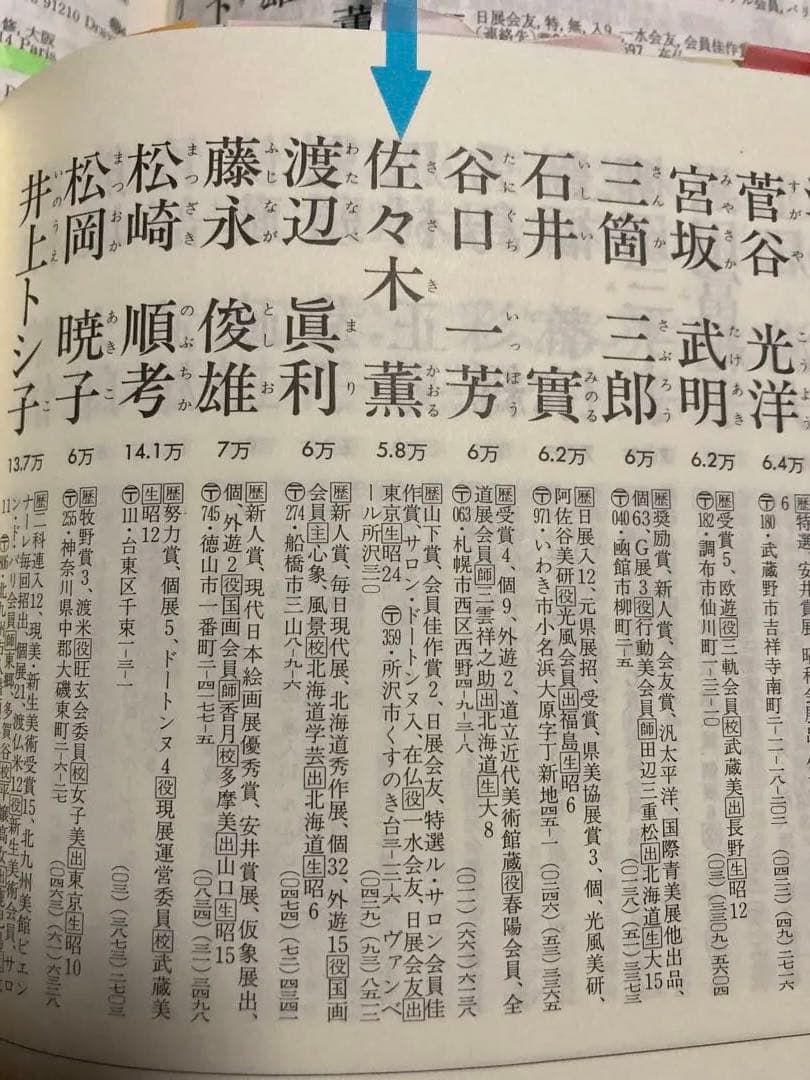 91210
修, 大阪
14 Paris
日展会友, 特, 無, 入9, 一水会友, 会員佳作
(連絡先)
菅谷 光洋
すがや こうよう
6.4万
6
〒180・武蔵野市吉祥寺南町二-二一-二八-三〇三 (〇四二二)(四九)二七一六
宮坂 武明
みやさか たけあき
6.2万
歴受賞5、欧遊役三軌会員校武蔵美出長野生昭12
〒182・調布市仙川町一-三一-二〇 (〇三)(三三〇九)五六〇四
三箇 三郎
さんか さぶろう
6万
歴奨励賞、新人賞、会友賞、汎太平洋、国際青美展他出品、
個63・G展3役行動美会員師田辺三重松出北海道生大15
〒040・函館市柳町二-五 (〇一三八)(五一)三三七三
石井 實
いしい みのる
6.2万
歴日展入12、元県展招、受賞、県美協展賞3、個、光風美研、
阿佐谷美研役光風会員出福島生昭6
〒971・いわき市小名浜大原字丁新地四五-一 (〇二四六)(五三)三三六五
谷口 一芳
たにぐち いっぽう
6万
歴受賞4、個9、外遊2、道立近代美術館蔵役春陽会員、全
道展会員師三雲祥之助出北海道生大8
〒063・札幌市西区西野四-九-三-八 (〇一一)(六六一)六一三八
佐々木 薫
ささき かおる
5.8万
歴山下賞、会員佳作賞2、日展会友、特選ル・サロン会員佳
作賞、サロン・ドートンヌ入、在仏役一水会友、日展会友出
東京生昭24 〒359・所沢市くすのき台三-二-二六 ヴァンベ
ール所沢三一〇 (〇四二九)(九三)八五一二
渡辺 眞利
わたなべ まり
6万
歴新人賞、毎日現代展、北海道秀作展、個32、外遊15役国画
会員主心象、風景校北海道学芸出北海道生昭6
〒274・船橋市三山八-九-六 (〇四七四)(七二)四三四一
藤永 俊雄
ふじなが としお
7万
歴新人賞、現代日本絵画展優秀賞、安井賞展、仮象展出、
個、外遊2役国画会員師香月校多摩美出山口生昭15
〒745・徳山市一番町二-四一七七-五 (〇八三四)(三一)三四九八
松崎 順考
まつざき のぶちか
14.1万
歴努力賞、個展5、ドートンヌ4役現展運営委員校武蔵美
生昭12
〒111・台東区千束一-三-一 (〇三)(三八七三)二七〇三
松岡 暁子
まつおか あきこ
6万
歴牧野賞3、渡米役旺玄会委員校女子美出東京生昭10
〒255・神奈川県中郡大磯東町二-六-二七 (〇四六三)(六一)六三二八
井上トシ子
いのうえ こ
13.7万
歴二科連入12、現美・新生美術受賞15、北九州美館ビエン
ナーレ毎回招出、個展21、渡仏米12役新生美術会員、サロ
ン・ド・パリ会員師東郷、多賀谷校平壌高女出
11